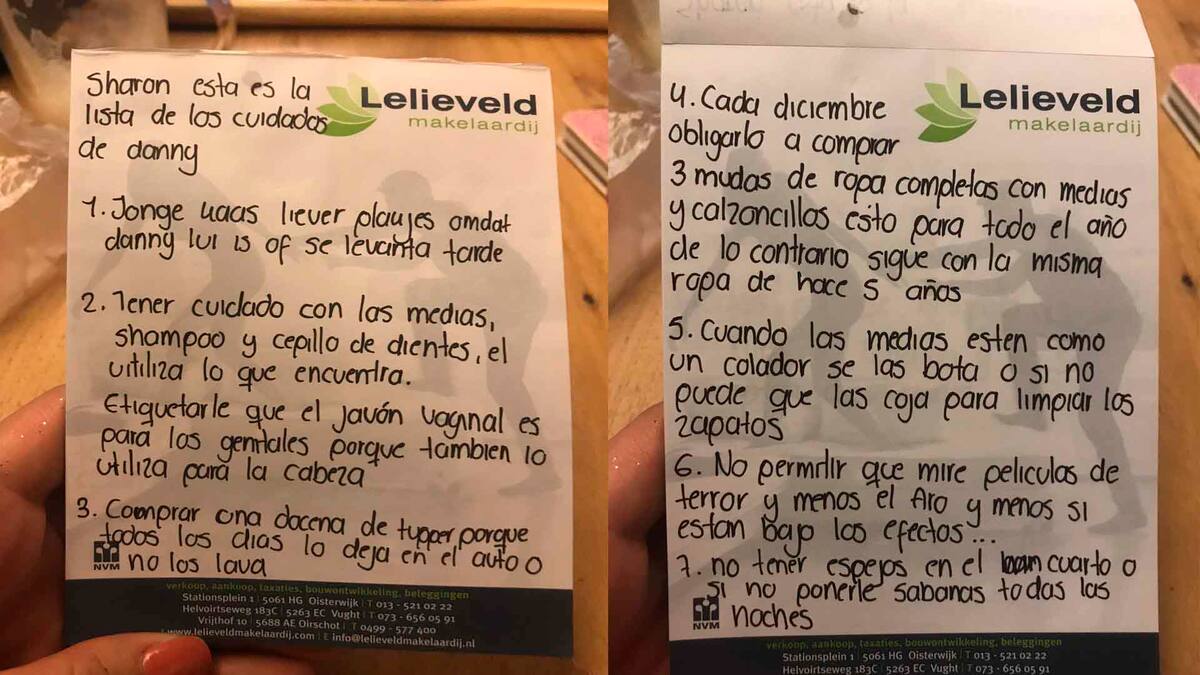 Sharon esta es la
lista de los cuidados
de danny
Lelieveld
makelaardij
1. Jonge kaas liever plakjes omdat
danny lui is of se levanta tarde
2. Tener cuidado con las medias,
shampoo y cepillo de dientes, el
utiliza lo que encuentra.
Etiquetarle que el javón vagnal es
para los genitales porque tambien lo
utiliza para la cabeza
3. Comprar una docena de tupper porque
todos los dias lo deja en el auto o
no los lava
NVM
verkoop, aankoop, taxaties, bouwontwikkeling, beleggingen
Stationsplein 1 | 5061 HG Oisterwijk | T 013 - 521 02 22
Helvoirtseweg 183C | 5263 EC Vught | T 073 - 656 05 91
Vrijthof 10 | 5688 AE Oirschot | T 0499 - 577 400
www.lelieveldmakelaardij.com | E info@lelieveldmakelaardij.nl
Lelieveld
makelaardij
4. Cada diciembre
obligarlo a comprar
3 mudas de ropa completas con medias
y calzoncillos esto para todo el año
de lo contrario sigue con la misma
ropa de hace 5 años
5. Cuando las medias esten como
un colador se las bota o si no
puede que las coja para limpiar los
zapatos
6. No permitir que mire peliculas de
terror y menos el Aro y menos si
estan bajo los efectos...
7. no tener espejos en el cuarto o
si no ponerle sabanas todas las
noches
NVM
verkoop, aankoop, taxaties, bouwontwikkeling, beleggingen
Stationsplein 1 | 5061 HG Oisterwijk | T 013 - 521 02 22
Helvoirtseweg 183C | 5263 EC Vught | T 073 - 656 05 91